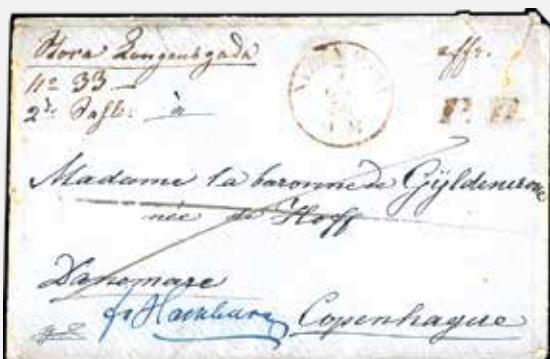 Stora Kongensgada
No 33 —
2d. Sahl: à
affr.
P. P.
Madame la baronne de Gÿldencrone
née de Hoff
Danemarc
fr Hamburg
Copenhague